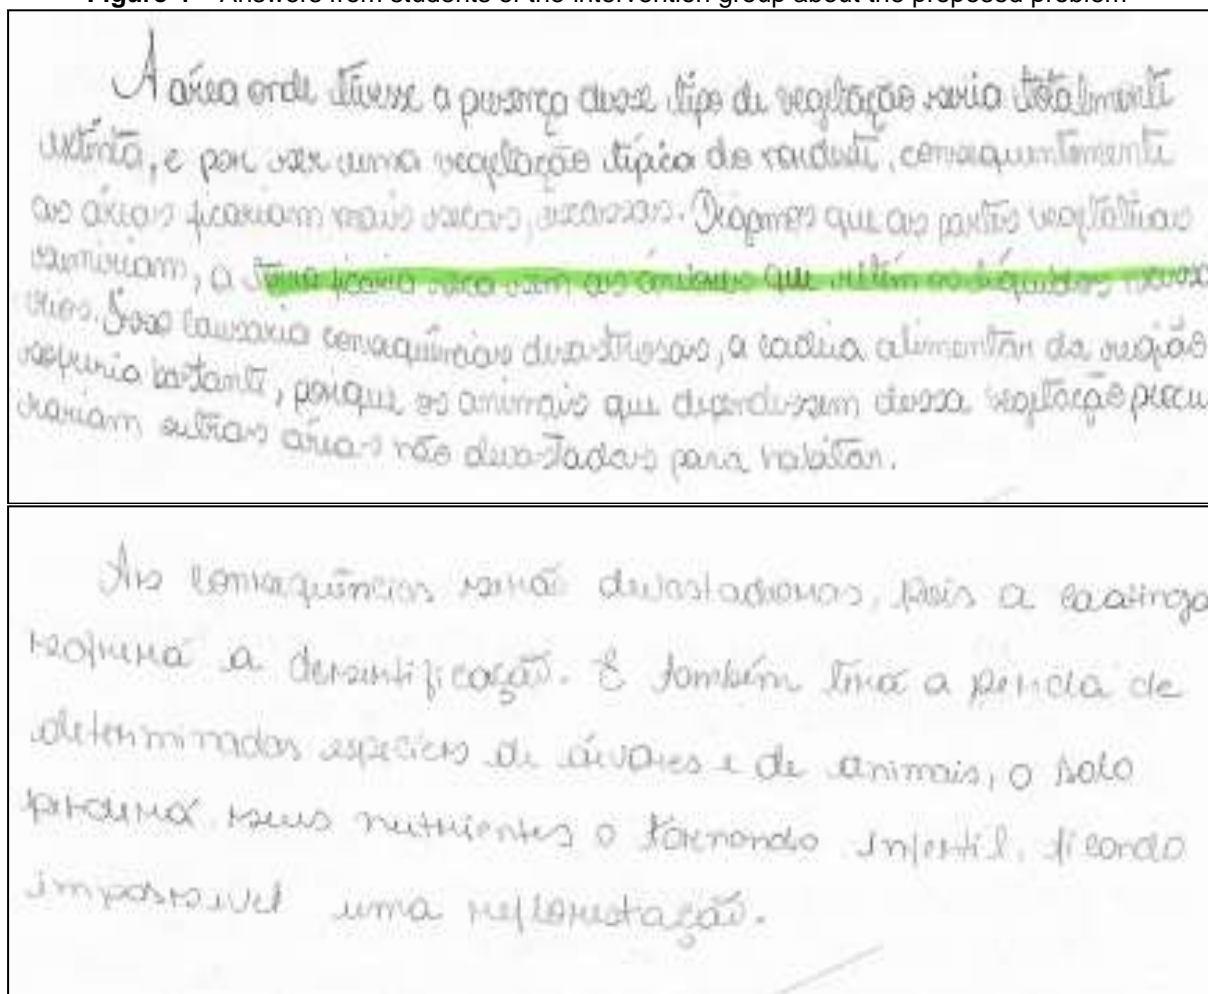 Figure 4 – Answers from students of the intervention group about the proposed problem
A área onde tivesse a presença desse tipo de vegetação seria totalmente
extinta, e por ser uma vegetação típica do nordeste, consequentemente
as áreas ficariam mais secas, escassas. Digamos que as partes vegetativas
sumiriam, a terra ficaria seca sem as árvores que retém os líquidos
Isso causaria consequências desastrosas, a cadeia alimentar da região
sofreria bastante, porque os animais que dependessem dessa vegetação procu
rariam outras áreas não devastadas para habitar.
As consequências serão devastadoras, pois a caatinga
sofrerá a desertificação. E também terá a perda de
determinadas espécies de árvores e de animais, o solo
perderá seus nutrientes o tornando infertil, ficando
impossivel uma reflorestação.